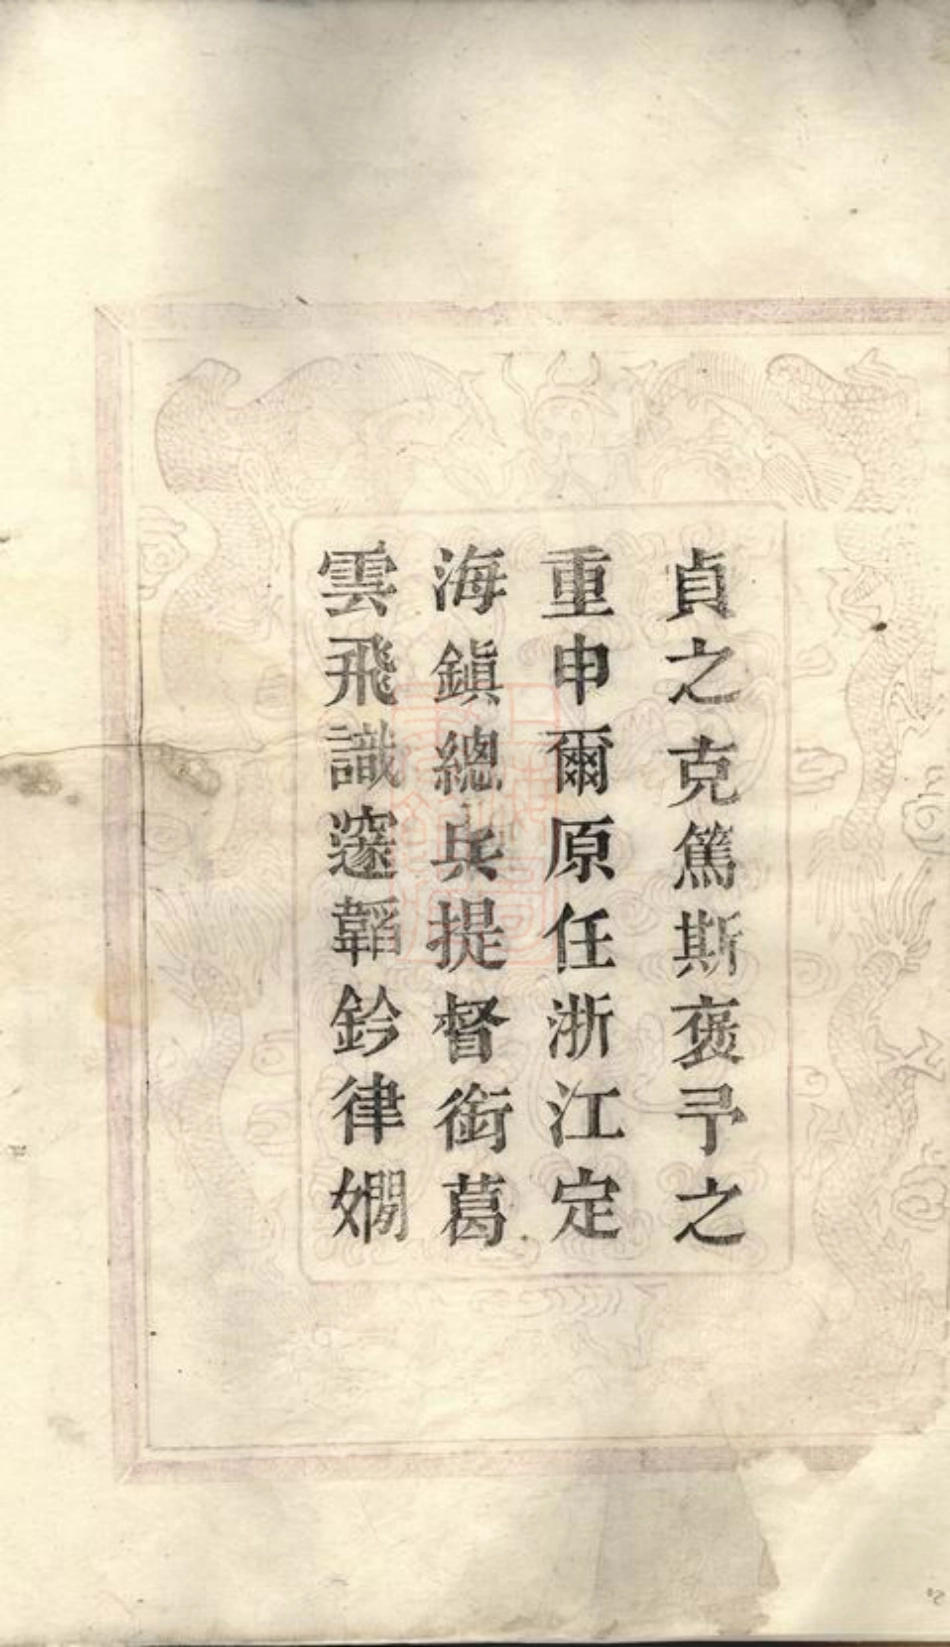 貞之克篤斯褒予之
重申爾原任浙江定
海鎭總兵提督銜葛
雲飛識邃韜鈐律嫻